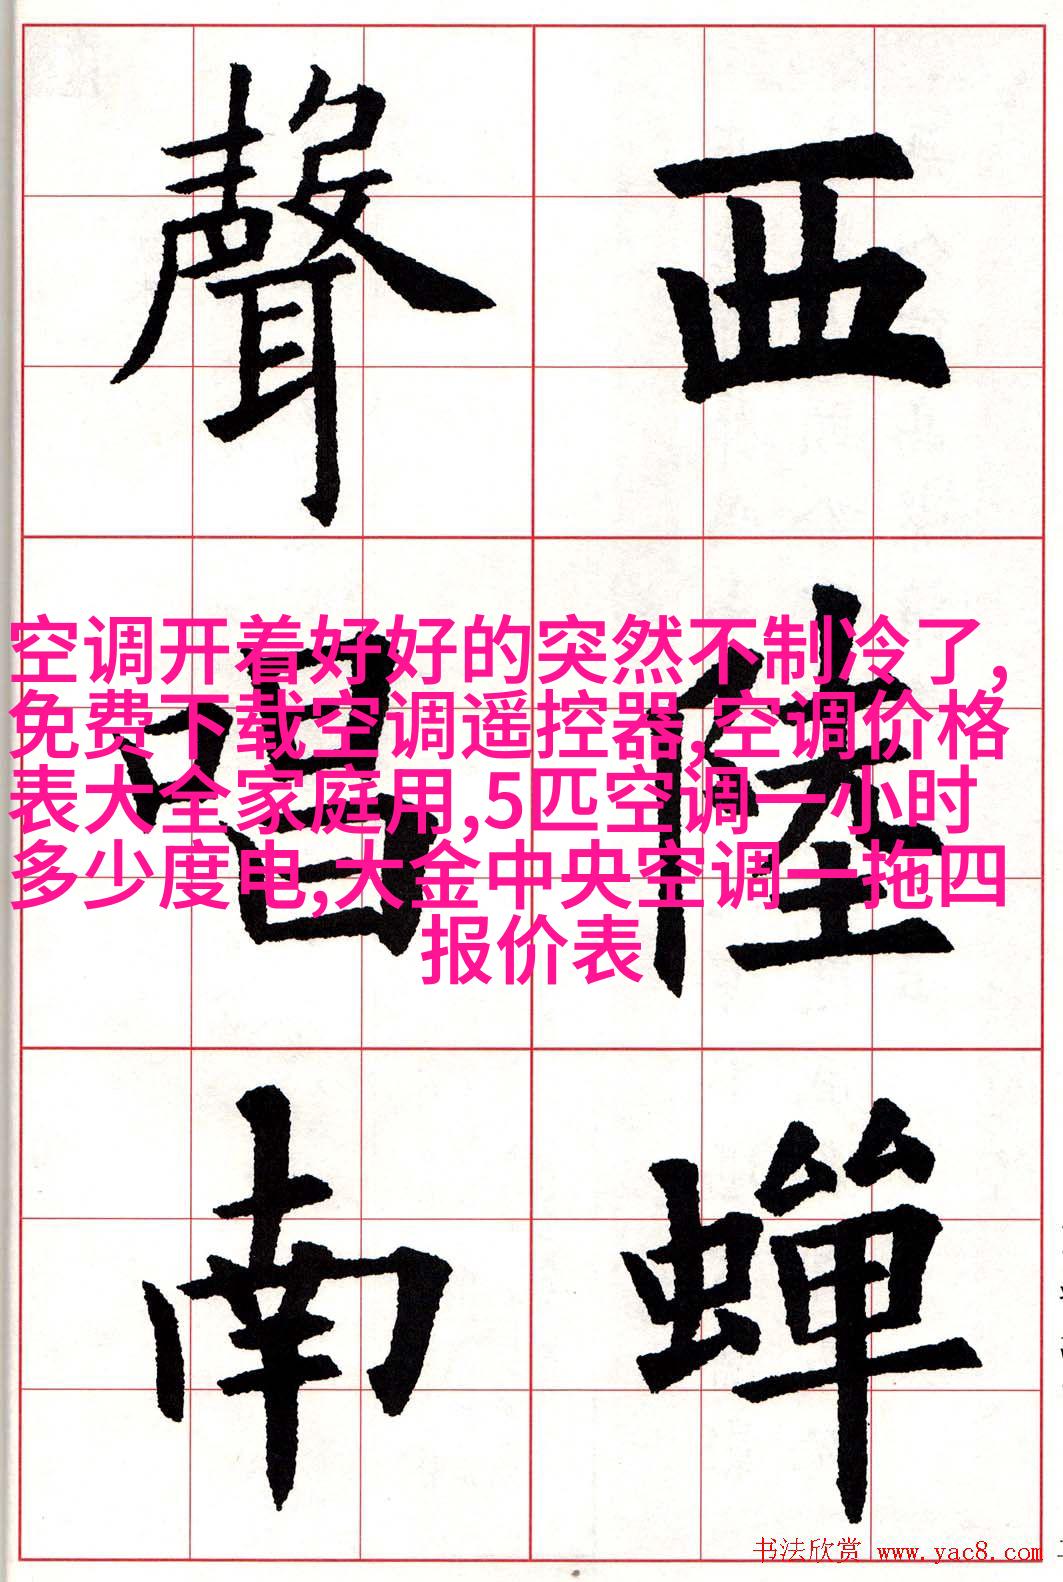 西陸蟬
聲唱南
空调开着好好的突然不制冷了,
免费下载空调遥控器,空调价格
表大全家庭用,5匹空调一小时
多少度电,大金中央空调一拖四
报价表
书法欣赏 www.yac8.com